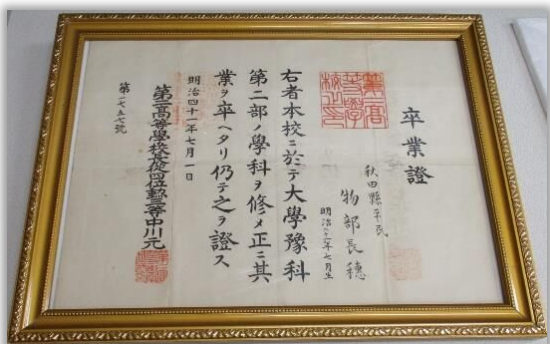 卒業證
秋田縣平民
物部長穗
明治廿一年七月生
右者本校ニ於テ大學豫科
第二部ノ學科ヲ修メ正ニ其
業ヲ卒ヘタリ仍テ之ヲ證ス
明治四十一年七月一日
第二高等學校長從四位勲三等中川元
第一七五七號